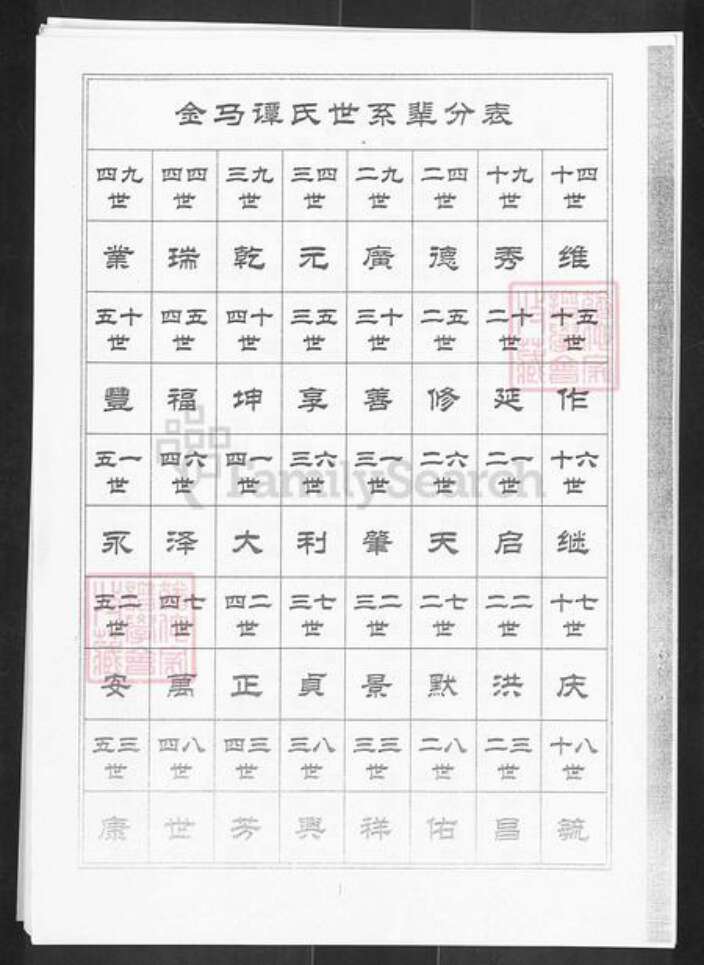 金马谭氏世系辈分表
四九世 四四世 三九世 三四世 二九世 二四世 十九世 十四世
業 瑞 乾 元 廣 德 秀 维
五十世 四五世 四十世 三五世 三十世 二五世 二十世 十五世
豐 福 坤 享 善 修 延 作
五一世 四六世 四一世 三六世 三一世 二六世 二一世 十六世
永 泽 大 利 肇 天 启 继
五二世 四七世 四二世 三七世 三二世 二七世 二二世 十七世
安 萬 正 貞 景 默 洪 庆
五三世 四八世 四三世 三八世 三三世 二八世 二三世 十八世
康 世 芳 興 祥 佑 昌 毓
FamilySearch
1